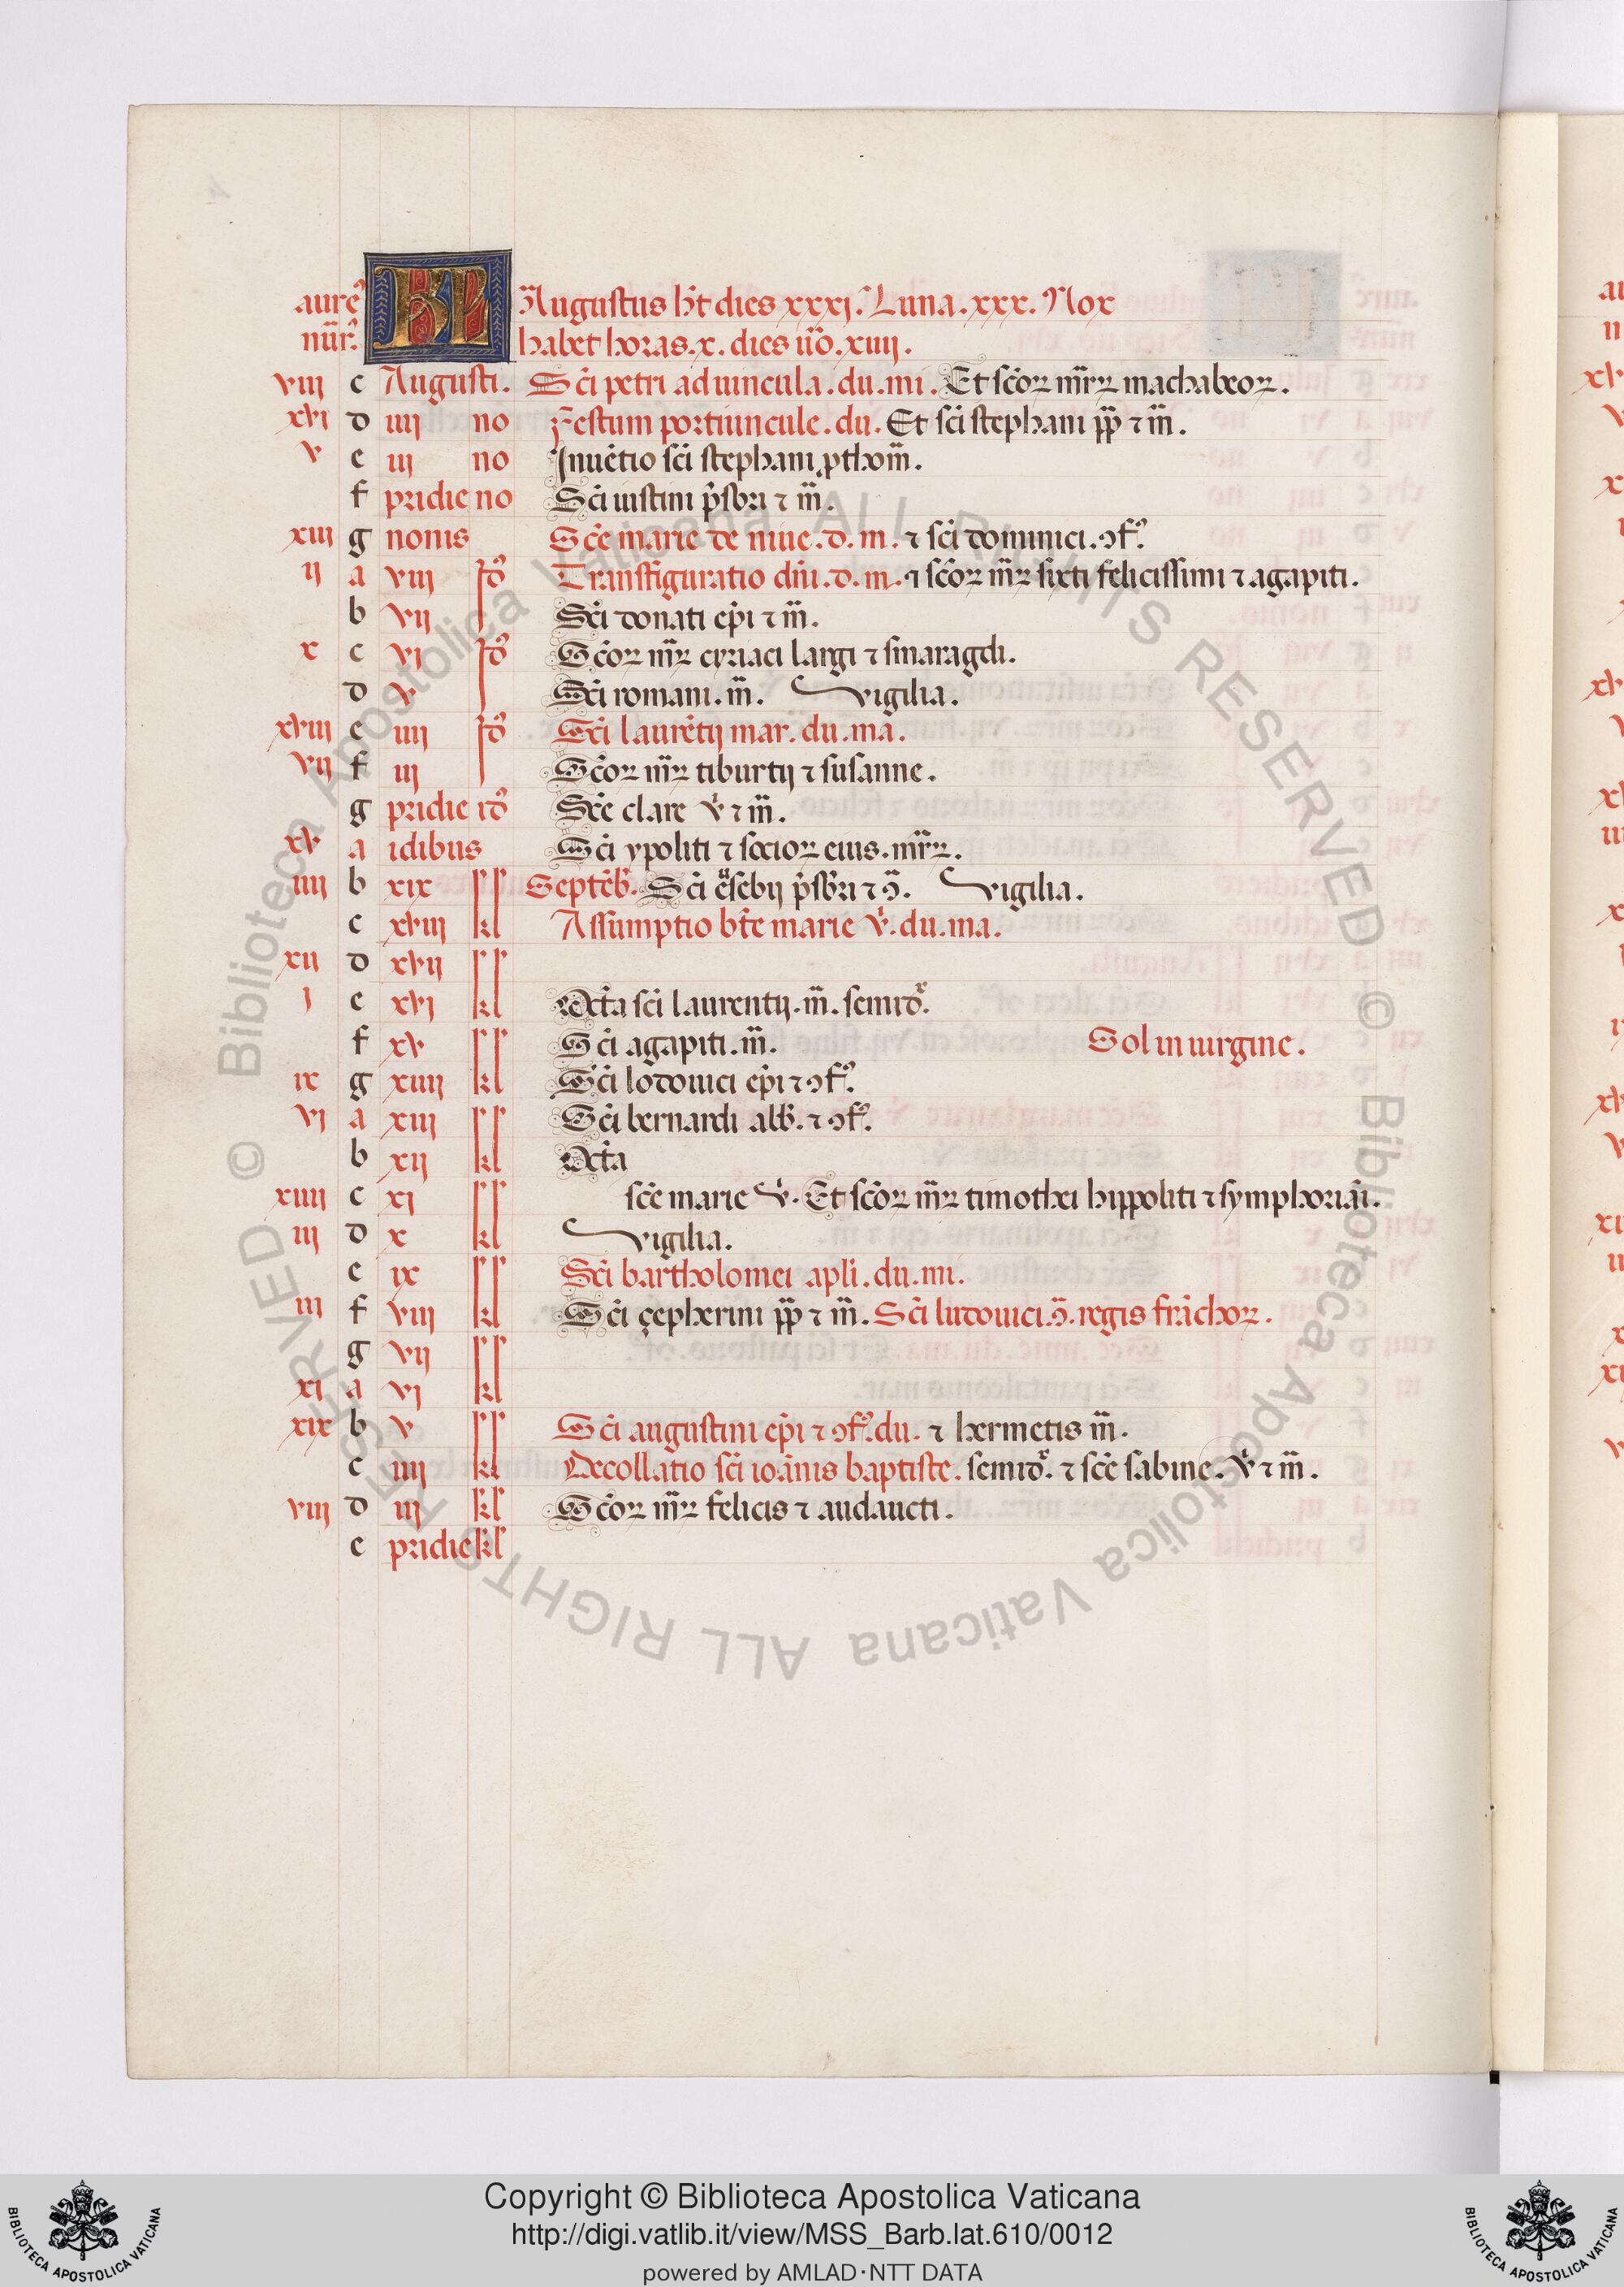 aure⁹ KL Augustus h̄t dies xxxj. Luna. xxx. Nox
nūr. habet horas. x. dies ũo. xiiij.
viij c Augusti. Sc̄i petri aduincula. du. mi. Et sc̄oꝝ mr̄ꝝ machabeoꝝ.
xvi d iiij no Festum portiuncule. du. Et sc̄i stephani pp̄ ⁊ m̄.
v e iij no Inuētio sc̄i stephani ꝓthom̄.
f pridie no Sc̄i iustini p̄sbri ⁊ m̄.
xiij g nonis Sc̄e marie de niue. d. m. ⁊ sc̄i dominici. ɔf⁹.
ij a viij id⁹ Transfiguratio dn̄i. d. m. ⁊ sc̄oꝝ mr̄ꝝ sixti felicissimi ⁊ agapiti.
b vij Sc̄i donati ep̄i ⁊ m̄.
x c vi id⁹ Sc̄oꝝ mr̄ꝝ cyriaci largi ⁊ smaragdi.
d v Sc̄i romani. m̄. vigilia.
xviij e iiij id⁹ Sc̄i laurētij mar. du. ma.
vij f iij Sc̄oꝝ mr̄ꝝ tiburtij ⁊ susanne.
g pridie id⁹ Sc̄e clare v̇ ⁊ m̄.
xv a idibus Sc̄i ypoliti ⁊ socioꝝ eius. mr̄ꝝ.
iiij b xix Septēb. Sc̄i eusebij p̄sbri ⁊ ɔ̄. vigilia.
c xviij kl Assumptio bt̄e marie v̇. du. ma.
xij d xvij
j e xvi kl Octa sc̄i laurentij. m̄. semid.
f xv Sc̄i agapiti. m̄. Sol in uirgine.
ix g xiiij kl Sc̄i lodouici ep̄i ⁊ ɔf⁹.
vi a xiij Sc̄i bernardi abb̄. ⁊ ɔf⁹.
b xij kl Octa
xiiij c xj sc̄e marie v̇. Et sc̄oꝝ mr̄ꝝ timothei hippoliti ⁊ symphoriāi.
iij d x kl vigilia.
e ix Sc̄i bartholomei apli. du. mi.
iij f viij kl Sc̄i çepherini pp̄ ⁊ m̄. Sc̄i ludouici. ɔ̄. regis frāchoꝝ.
g vij
xi a vj kl
xix b v Sc̄i augustini ep̄i ⁊ ɔf⁹. du. ⁊ hermetis m̄.
c iiij kl Decollatio sc̄i ioānis baptiste. semid. ⁊ sc̄e sabine. v̇ ⁊ m̄.
viij d iij kl Sc̄oꝝ mr̄ꝝ felicis ⁊ audaucti.
e pridie kl
© Biblioteca Apostolica Vaticana ALL RIGHTS RESERVED
© Biblioteca Apostolica Vaticana ALL RIGHTS RESERVED
Copyright © Biblioteca Apostolica Vaticana
http://digi.vatlib.it/view/MSS_Barb.lat.610/0012
powered by AMLAD·NTT DATA
BIBLIOTECA APOSTOLICA VATICANA
BIBLIOTECA APOSTOLICA VATICANA